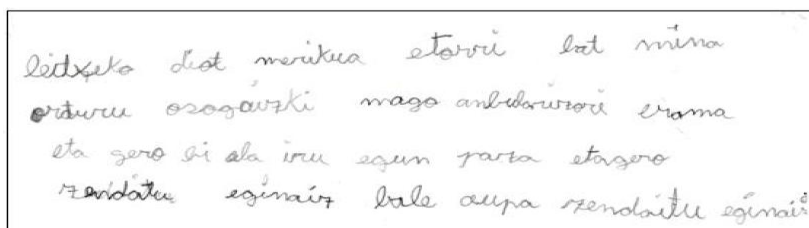 leidxeko diot merikua etorri bat mina
orduru osogaizki mago anbulanziari erama
eta gero bi ala iru egun parza etagero
zendatu eginaiz bale aupa zendaitu eginaiz